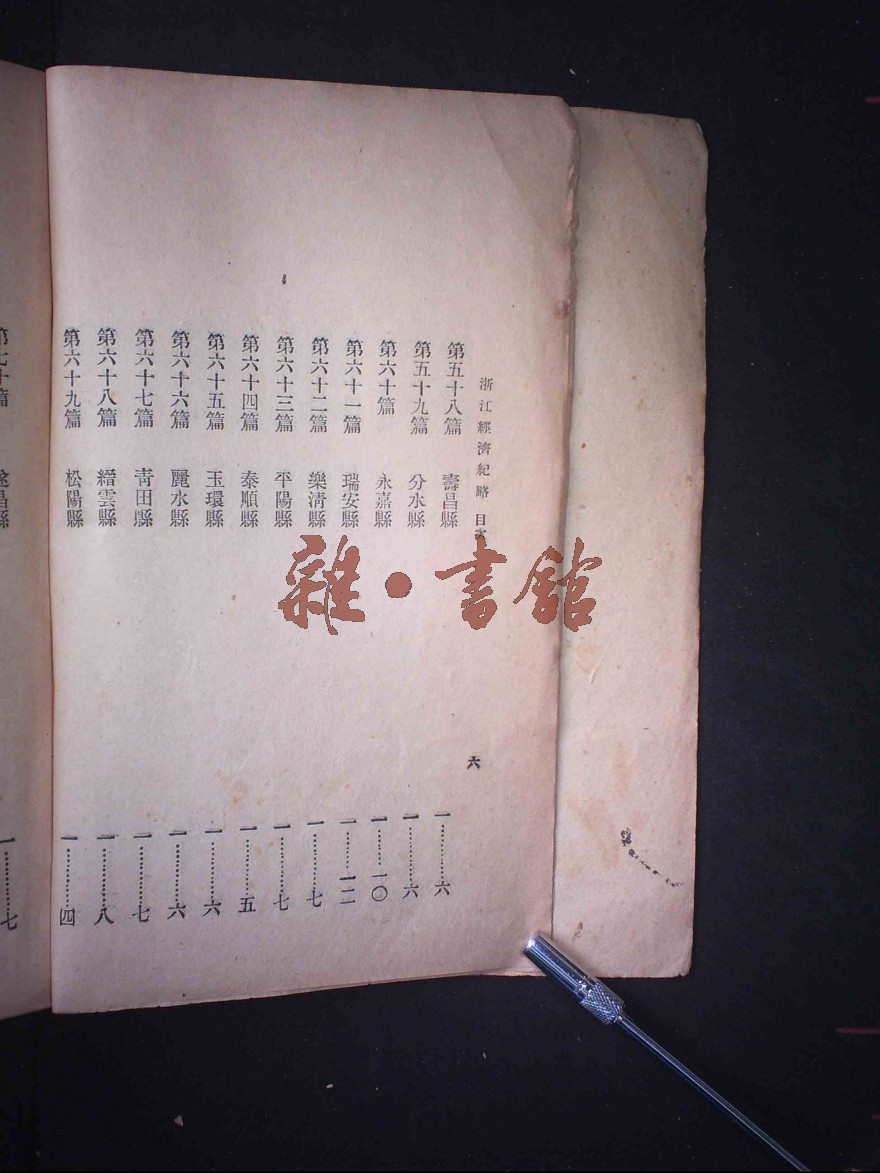 浙江經濟紀略 目次 六
第五十八篇 壽昌縣 一…………六
第五十九篇 分水縣 一…………六
第六十篇 永嘉縣 一…………一〇
第六十一篇 瑞安縣 一…………一二
第六十二篇 樂清縣 一…………七
第六十三篇 平陽縣 一…………七
第六十四篇 泰順縣 一…………五
第六十五篇 玉環縣 一…………六
第六十六篇 麗水縣 一…………六
第六十七篇 青田縣 一…………七
第六十八篇 縉雲縣 一…………八
第六十九篇 松陽縣 一…………四
第七十篇 遂昌縣 一…………七
雜·書館